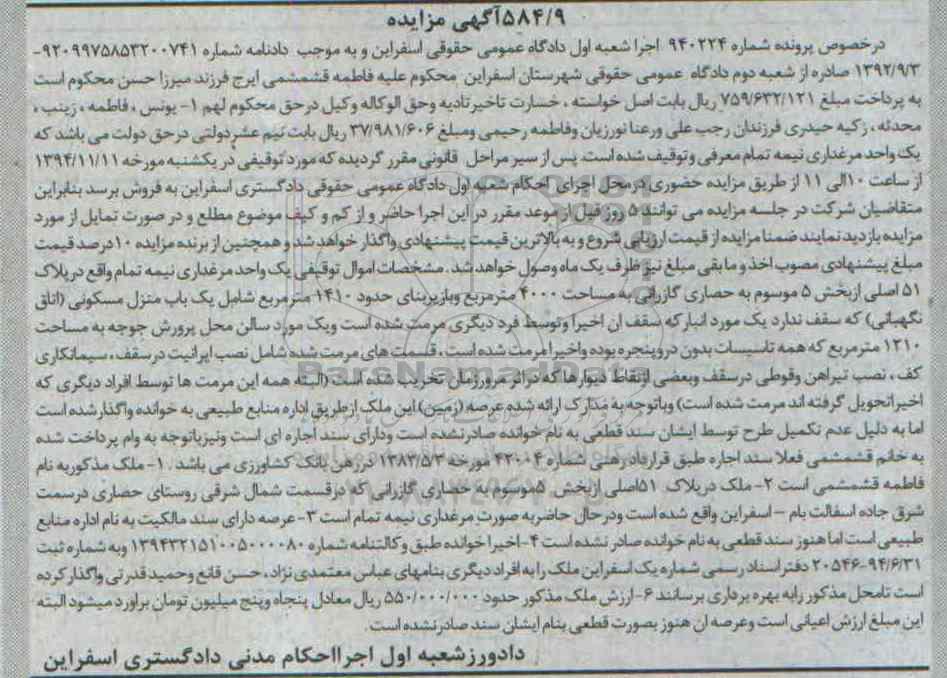 ۵۸۴/۹آگهی مزایده
درخصوص پرونده شماره ۹۴۰۲۲۴ اجرا شعبه اول دادگاه عمومی حقوقی اسفراین و به موجب دادنامه شماره ۹۲۰۹۹۷۵۸۵۳۲۰۰۷۴۱-
۱۳۹۲/۹/۳ صادره از شعبه دوم دادگاه عمومی حقوقی شهرستان اسفراین محکوم علیه فاطمه قشمشمی ایرج فرزند میرزا حسن محکوم است
به پرداخت مبلغ ۷۵۹/۶۳۲/۱۲۱ ریال بابت اصل خواسته ، خسارت تاخیرتادیه وحق الوکاله وکیل درحق محکوم لهم ۱- یونس ، فاطمه ، زینب ،
محدثه ، زکیه حیدری فرزندان رجب علی ورعنا نورزیان وفاطمه رحیمی ومبلغ ۳۷/۹۸۱/۶۰۶ ریال بابت نیم عشردولتی درحق دولت می باشد که
یک واحد مرغداری نیمه تمام معرفی وتوقیف شده است. پس از سیر مراحل قانونی مقرر گردیده که مورد توقیفی در یکشنبه مورخه ۱۳۹۴/۱۱/۱۱
از ساعت ۱۰الی ۱۱ از طریق مزایده حضوری درمحل اجرای احکام شعبه اول دادگاه عمومی حقوقی دادگستری اسفراین به فروش برسد بنابراین
متقاضیان شرکت در جلسه مزایده می توانند ۵ روز قبل از موعد مقرر در این اجرا حاضر و از کم و کیف موضوع مطلع و در صورت تمایل از مورد
مزایده بازدید نمایند ضمنا مزایده از قیمت ارزیابی شروع و به بالاترین قیمت پیشنهادی واگذار خواهد شد و همچنین از برنده مزایده ۱۰درصد قیمت
مبلغ پیشنهادی مصوب اخذ و مابقی مبلغ نیز ظرف یک ماه وصول خواهد شد . مشخصات اموال توقیفی یک واحد مرغداری نیمه تمام واقع درپلاک
۵۱ اصلی ازبخش ۵ موسوم به حصاری گازرانی به مساحت ۴۰۰۰ مترمربع وبازیربنای حدود ۱۴۱۰ مترمربع شامل یک باب منزل مسکونی (اتاق
نگهبانی) که سقف ندارد یک مورد انبار که سقف ان اخیرا وتوسط فرد دیگری مرمت شده است ویک مورد سالن محل پرورش جوجه به مساحت
۱۲۱۰ مترمربع که همه تاسیسات بدون دروپنجره بوده واخیرا مرمت شده است ، قسمت های مرمت شده شامل نصب ایرانیت درسقف ، سیمانکاری
کف ، نصب تیراهن وقوطی درسقف وبعضی ازنقاط دیوارها که دراثر مرورزمان تخریب شده است (البته همه این مرمت ها توسط افراد دیگری که
اخیراتحویل گرفته اند مرمت شده است) وباتوجه به مدارک ارائه شده عرصه (زمین) این ملک ازطریق اداره منابع طبیعی به خوانده واگذارشده است
اما به دلیل عدم تکمیل طرح توسط ایشان سند قطعی به نام خوانده صادرنشده است ودارای سند اجاره ای است ونیزباتوجه به وام پرداخت شده
به خانم قشمشمی فعلا سند اجاره طبق قرارداد رهنی شماره ۴۲۰۰۴ مورخه ۱۳۸۳/۵/۳ دررهن بانک کشاورزی می باشد . ۱- ملک مذکوربه نام
فاطمه قشمشمی است ۲- ملک درپلاک ۵۱اصلی ازبخش ۵موسوم به حصاری گازرانی که درقسمت شمال شرقی روستای حصاری درسمت
شرق جاده اسفالت بام – اسفراین واقع شده است ودرحال حاضربه صورت مرغداری نیمه تمام است ۳- عرصه دارای سند مالکیت به نام اداره منابع
طبیعی است اما هنوز سند قطعی به نام خوانده صادر نشده است ۴- اخیرا خوانده طبق وکالتنامه شماره ۱۳۹۴۳۲۱۵۱۰۰۵۰۰۰۰۸۰ وبه شماره ثبت
۲۰۵۴۶-۹۴/۶/۳۱ دفتراسناد رسمی شماره یک اسفراین ملک را به افراد دیگری بنامهای عباس معتمدی نژاد ، حسن قانع وحمید قدرتی واگذار کرده
است تامحل مذکور رابه بهره برداری برسانند ۶- ارزش ملک مذکور حدود ۵۵۰/۰۰۰/۰۰۰ ریال معادل پنجاه وپنج میلیون تومان براورد میشود البته
این مبلغ ارزش اعیانی است وعرصه ان هنوز بصورت قطعی بنام ایشان سند صادرنشده است .
دادورزشعبه اول اجرااحکام مدنی دادگستری اسفراین
ParsNamadData